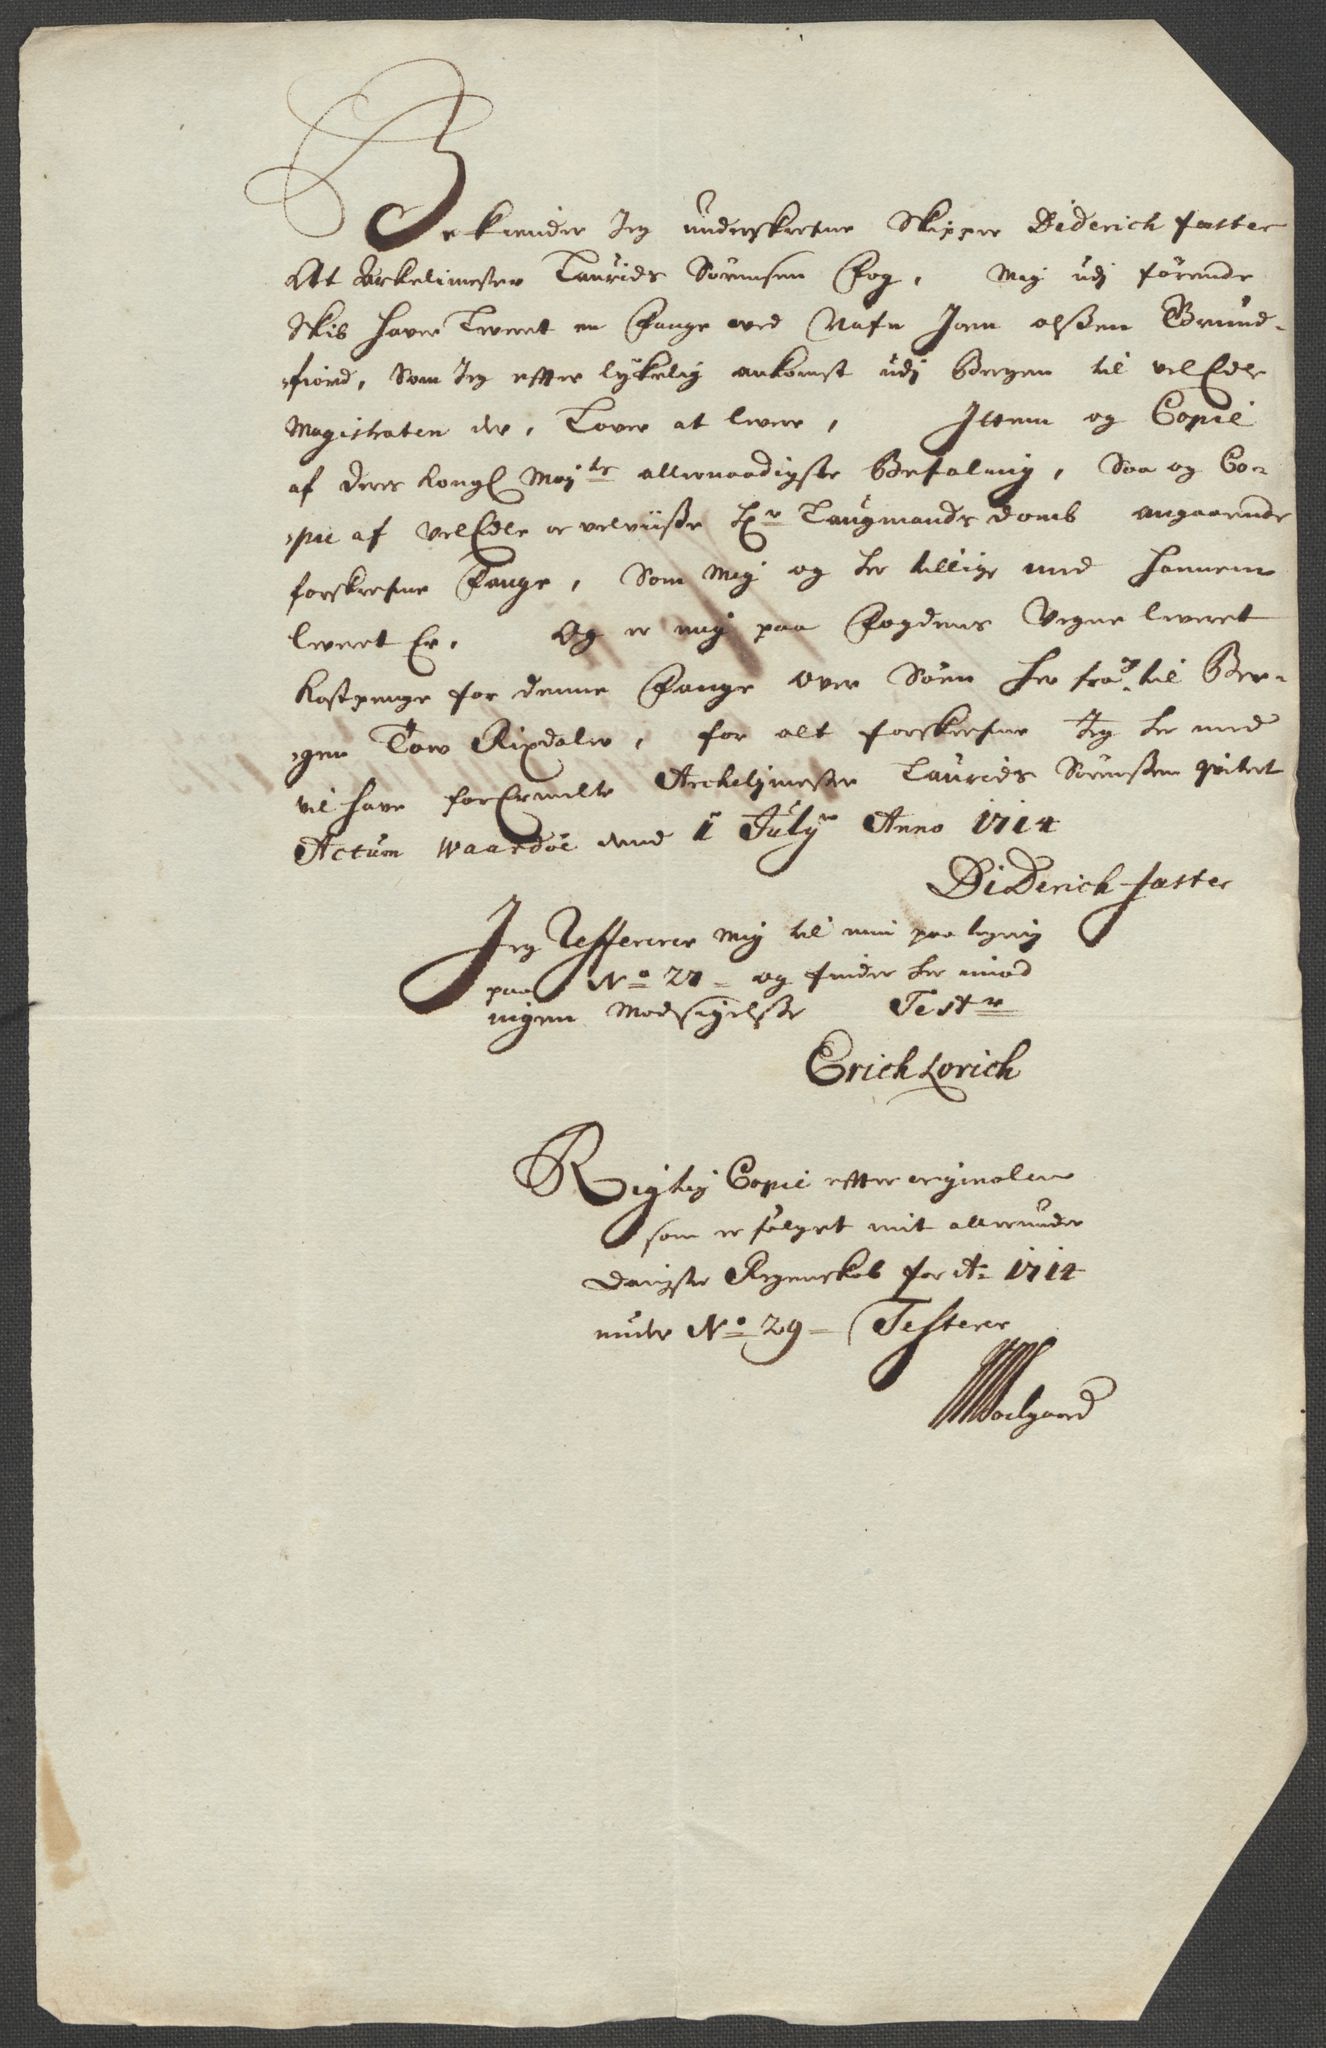 Bekiender Jeg underskrefne Skipper Diderich faster
Att Arkelimester Laurids Sørensen Fog, Mig udj førende
Skib hafver Leveret en Fange ved Nafn Joen olßen Grund-
fiord, Som Jeg efter lykelig ankomst udj Bergen til velEdle
Magistraten der, Lover at levere, Ittem og Copie
af Deres Kongl Mayts allernaadigste Befaling, Saa og Co-
pie af VelEdle oc velviiße Hr Laugmands domb angaaende
forskrefne Fange, Som Mig og her tillige med hannem
leveret Er, Og er mig paa Fogdens Vegne leveret
kostpenge for denne Fange over Søen her fra til Ber-
gen Tow Rixdaler, for alt forskrefne Jeg her med
vil have forErmelte Archelijmester Laurids Sørenßen qviteret
Actum Waardøe dend 1 July Anno 1714
Diderich faster
Jeg Refferere mig til min paategning
paa No 27 og finder her imod
ingen Modsigelße Testr
Erich Lorich
Rigtig Copie efter originalen
som er følget mit allerunder
danigste Regenskab for Ao 1714
under No 29 Testerer